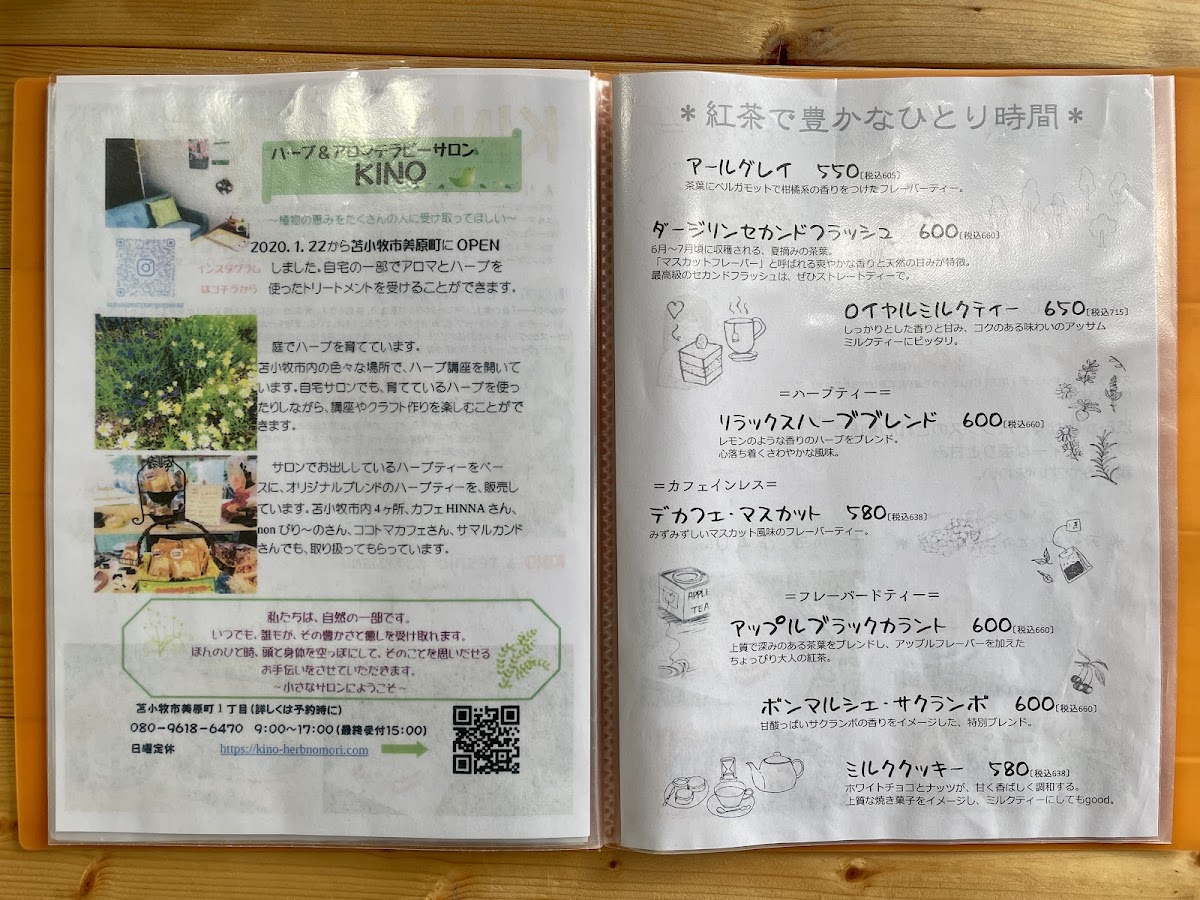 ハーブ＆アロマテラピーサロン
KINO
～植物の恵みをたくさんの人に受け取ってほしい～
2020.1.22から苫小牧市美原町にOPEN
しました。自宅の一部でアロマとハーブを
使ったトリートメントを受けることができます。
インスタグラム
はコチラから
庭でハーブを育てています。
苫小牧市内の色々な場所で、ハーブ講座を開いて
います。自宅サロンでも、育てているハーブを使っ
たりしながら、講座やクラフト作りを楽しむことがで
きます。
サロンでお出ししているハーブティーをベー
スに、オリジナルブレンドのハーブティーを、販売し
ています。苫小牧市内4ヶ所、カフェHINNAさん、
nonびり～のさん、ココトマカフェさん、サマルカンド
さんでも、取り扱ってもらっています。
私たちは、自然の一部です。
いつでも、誰もが、その豊かさと癒しを受け取れます。
ほんのひと時、頭と身体を空っぽにして、そのことを思いだせる
お手伝いをさせていただきます。
～小さなサロンにようこそ～
苫小牧市美原町1丁目(詳しくは予約時に)
080-9618-6470 9:00～17:00(最終受付15:00)
日曜定休 https://kino-herbnomori.com
＊紅茶で豊かなひとり時間＊
アールグレイ 550[税込605]
茶葉にベルガモットで柑橘系の香りをつけたフレーバーティー。
ダージリンセカンドフラッシュ 600[税込660]
6月～7月頃に収穫される、夏摘みの茶葉。
「マスカットフレーバー」と呼ばれる爽やかな香りと天然の甘みが特徴。
最高級のセカンドフラッシュは、ぜひストレートティーで。
ロイヤルミルクティー 650[税込715]
しっかりとした香りと甘み、コクのある味わいのアッサム
ミルクティーにピッタリ。
＝ハーブティー＝
リラックスハーブブレンド 600[税込660]
レモンのような香りのハーブをブレンド。
心落ち着くさわやかな風味。
＝カフェインレス＝
デカフェ・マスカット 580[税込638]
みずみずしいマスカット風味のフレーバーティー。
APPLE
TEA
＝フレーバードティー＝
アップルブラックカラント 600[税込660]
上質で深みのある茶葉をブレンドし、アップルフレーバーを加えた
ちょっぴり大人の紅茶。
ボンマルシェ・サクランボ 600[税込660]
甘酸っぱいサクランボの香りをイメージした、特別ブレンド。
ミルククッキー 580[税込638]
ホワイトチョコとナッツが、甘く香ばしく調和する。
上質な焼き菓子をイメージし、ミルクティーにしてもgood。